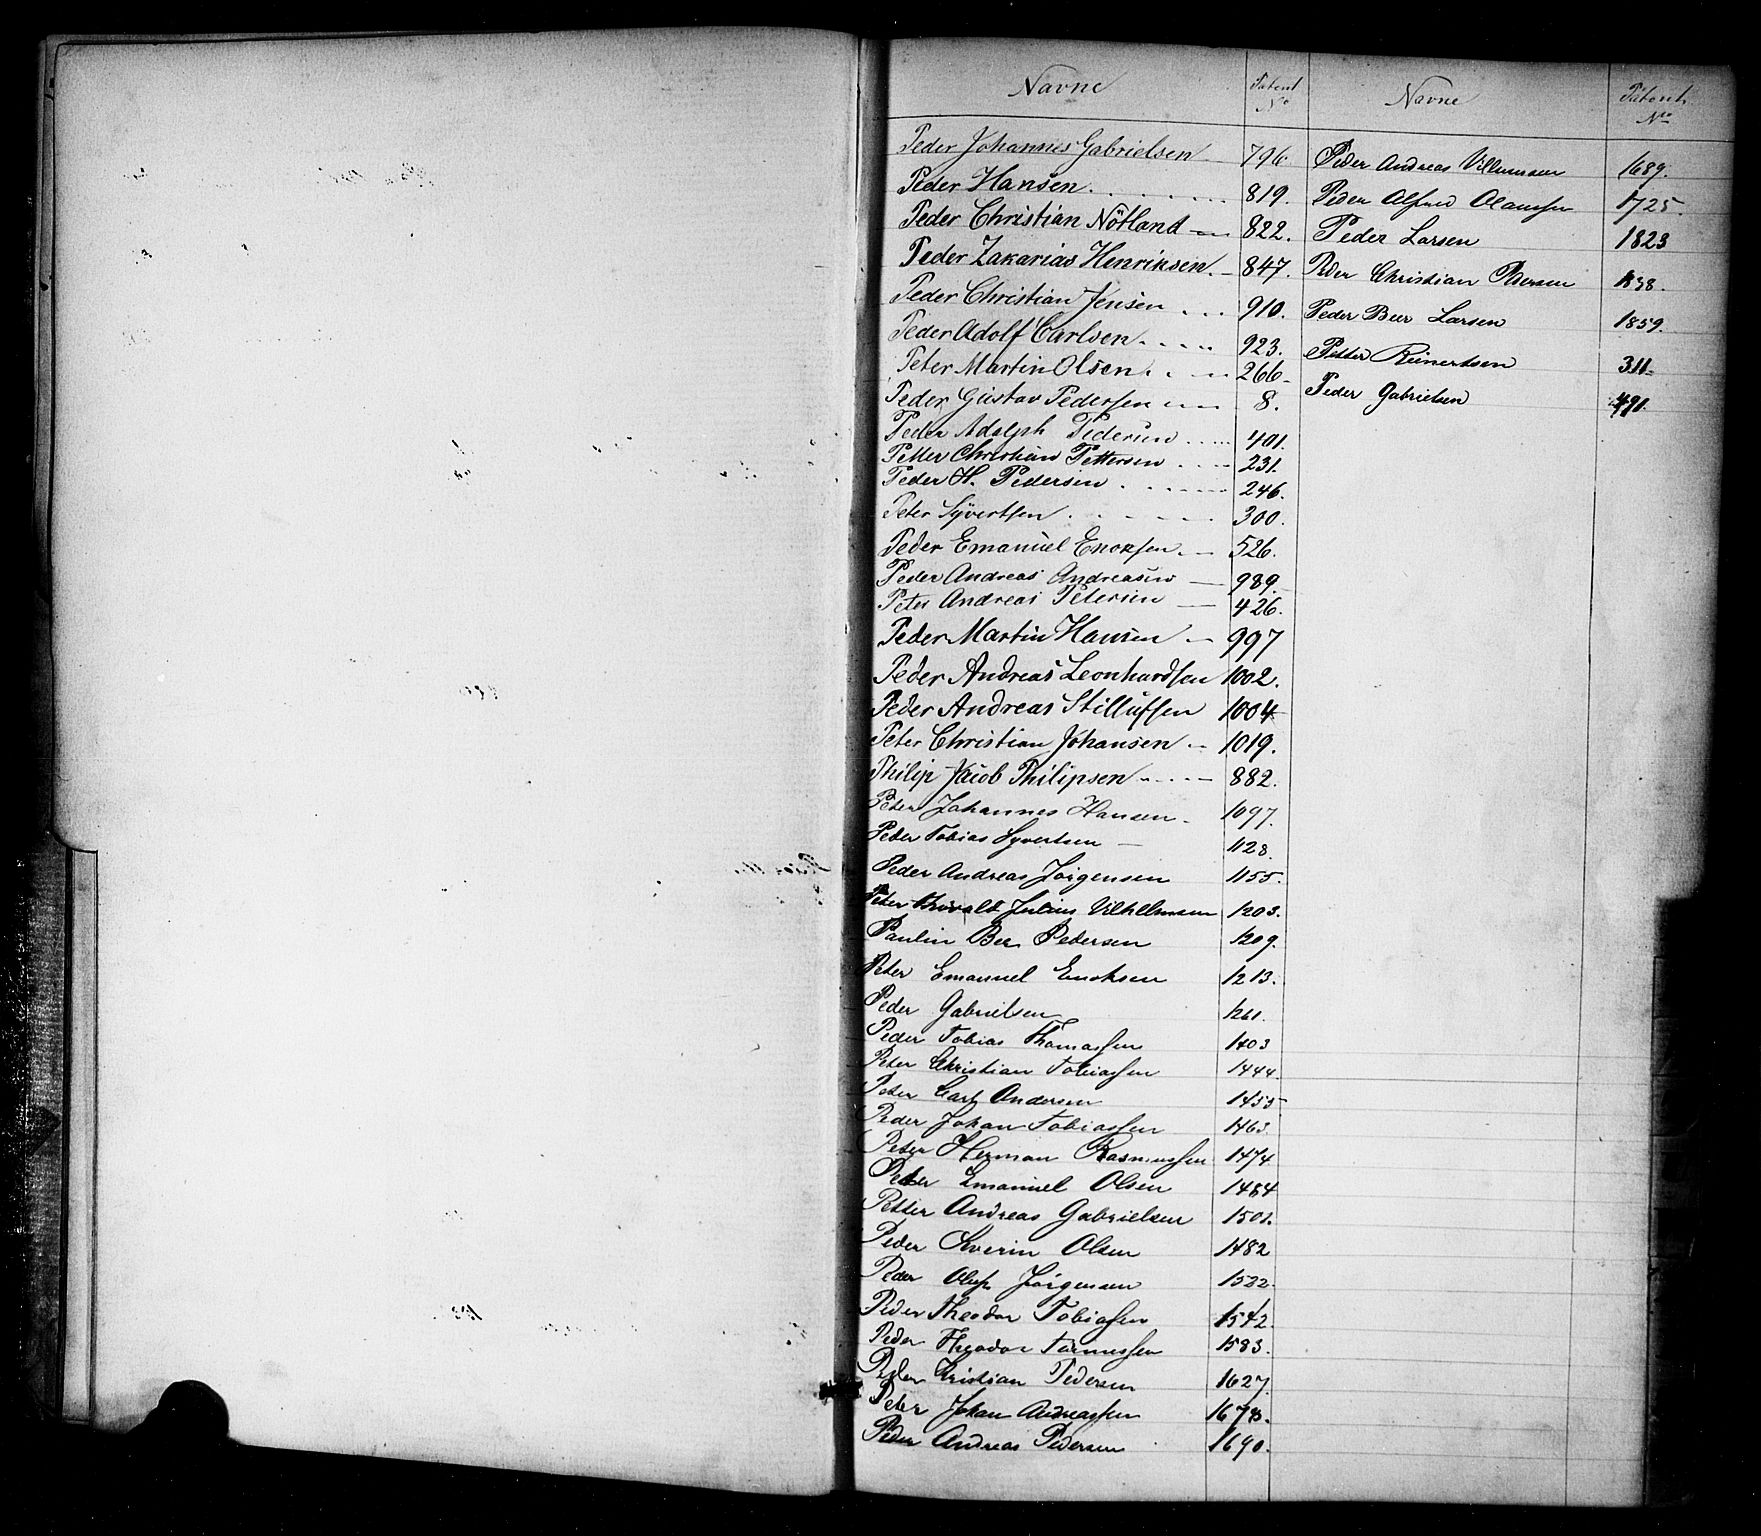 Navne Patent No
Peder Johannes Gabrielsen 796.
Peder Hansen 819.
Peder Christian Nötland 822.
Peder Zakarias Henriksen 847.
Peder Christian Jensen 910.
Peder Adolf Carlsen 923.
Peter Martin Olsen 266
Peder Gustav Pedersen 8.
Peder Adolph Pedersen 401.
Petter Christian Pettersen 231.
Peder H. Pedersen 246.
Peter Syvertsen 300.
Peder Emanuel Enoksen 526.
Peder Andreas Andreasen 989.
Peter Andreas Petersen 426.
Peder Martin Hansen 997
Peder Andreas Leonhardsen 1002.
Peder Andreas Stillufsen 1004
Peter Christian Johansen 1019.
Philip Jacob Philipsen 882.
Peter Johannes Hansen 1097.
Peder Tobias Syvertsen 1128.
Peder Andreas Jörgensen 1155.
Peter Julius 1203.
Paulin Ber Pedersen 1209.
Peter Emanuel Enoksen 1213.
Peder Gabrielsen 1261.
Peder Tobias Thomassen 1403
Peter Christian Tobiassen 1444.
Peter Carl Andersen 1455
Peder Johan Tobiassen 1463.
Peter Herman Rasmussen 1474
Peder Emanuel Olsen 1484
Petter Andreas Gabrielsen 1501.
Peder Severin Olsen 1482
Peder Oluf Jörgensen 1522.
Peder Theodor Tobiassen 1542.
Peder Theodor 1583.
Peder Cristian Pedersen 1627.
Peter Johan Andreassen 1678.
Peder Andreas Pedersen 1690.
Navne Patent No
Peder Andreas Villumsen 1689.
Peder Alfred Olaussen 1725.
Peder Larsen 1823
Peder Christian Petersen 1838.
Peder Beer Larsen 1859.
Petter Reinertsen 311
Peder Gabrielsen 491.